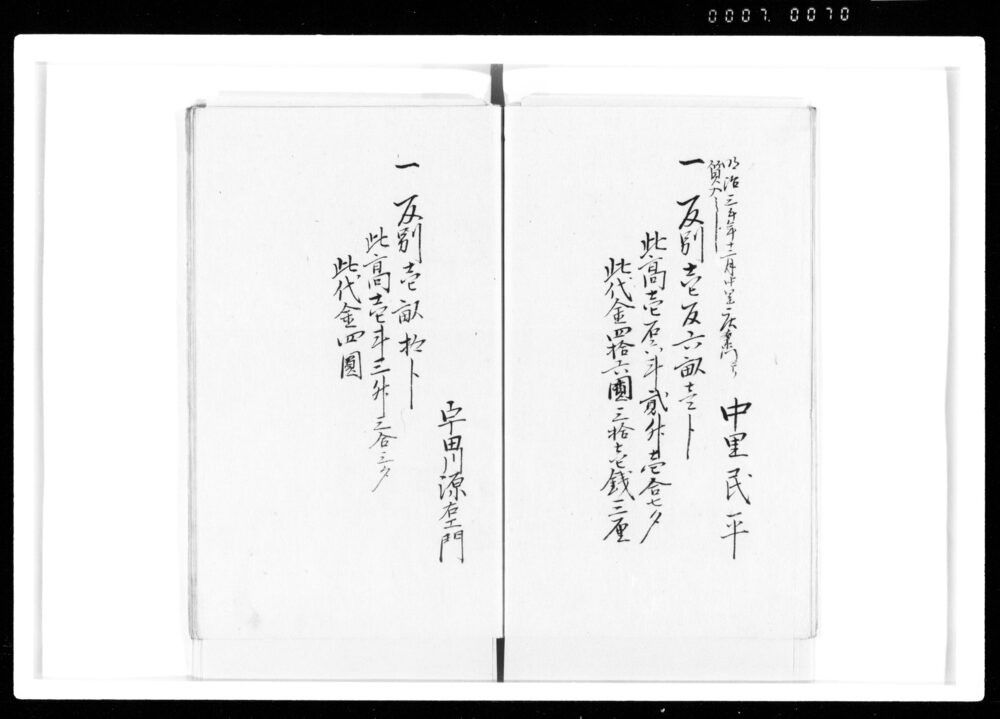 0007. 0070
明治三年十二月中里二左衛門ゟ
質入
中里民平
一 反別壱反六畝壱卜
此高壱石六斗弐升壱合七夕
此代金四拾六圓三拾七銭三厘
早田川源右エ門
一 反別壱畝拾卜
此高壱斗三升三合三夕
此代金四圓